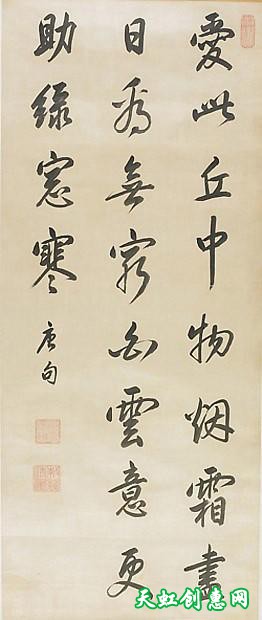 愛此丘中物烟霜盡
日看無窮白雲意更
助綠窻寒
唐句
天虹创意网